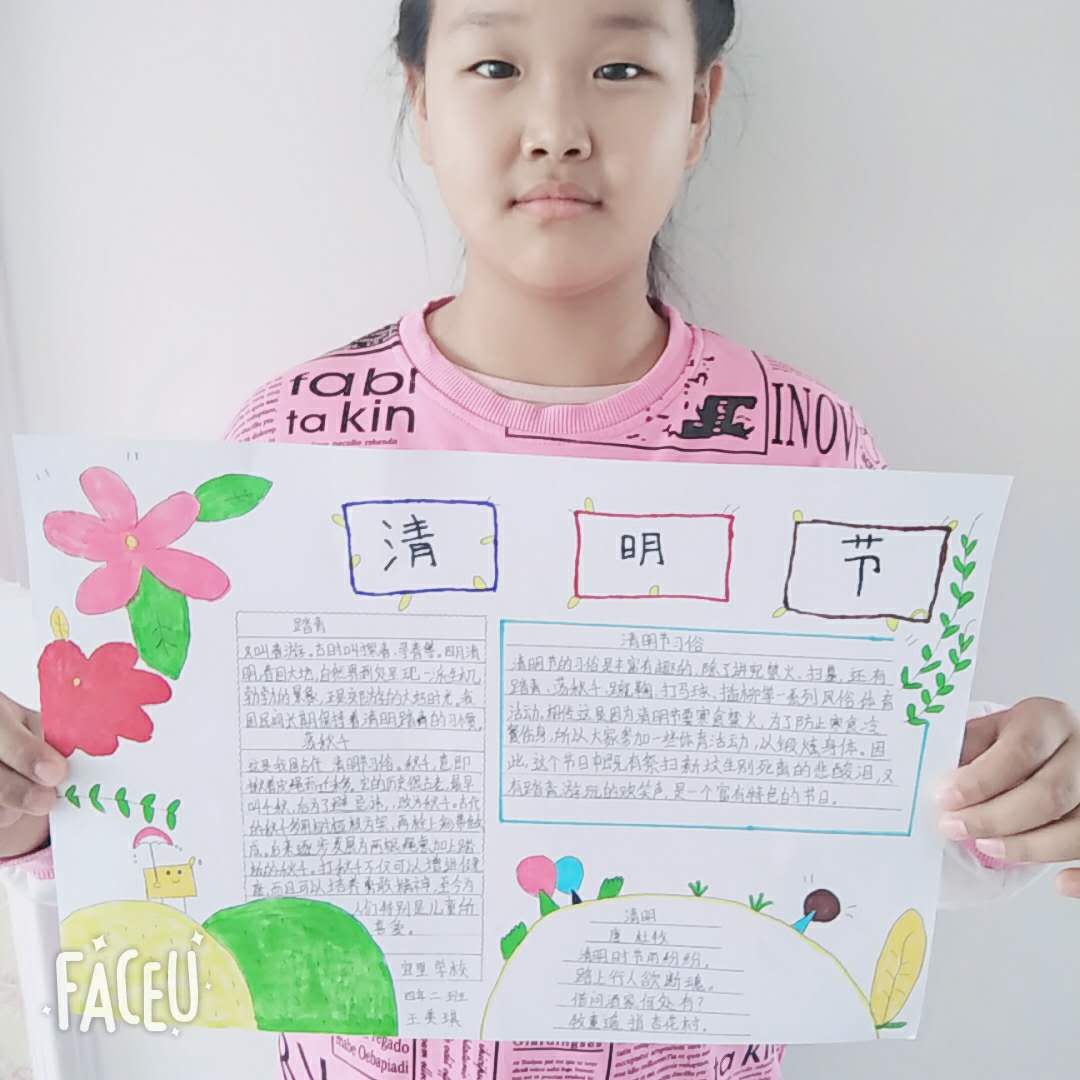 fabl
ta kin
INOV
清
明
节
踏青
又叫春游。古时叫探春、寻春等。四月清
明,春回大地,自然界到处呈现一派生机
勃勃的景象,正是郊游的大好时光。我
国民间长期保持着清明踏青的习惯。
荡秋千
这是我国古代清明节习俗。秋千,意即
揪着皮绳而迁移。它的历史很古老,最早
叫千秋,后为了避忌讳,改为秋千。古代
的秋千多用树桠枝为架,再栓上彩带做
成。后来逐步发展为两根绳索加上踏
板的秋千。打秋千不仅可以增进健
康,而且可以培养勇敢精神,至今为
人们特别是儿童所
喜爱。
学校
四年二班
王美琪
清明节习俗
清明节的习俗是丰富有趣的,除了讲究禁火、扫墓,还有
踏青、荡秋千、蹴鞠、打马球、插柳等一系列风俗体育
活动。相传这是因为清明节要寒食禁火,为了防止寒食冷
餐伤身,所以大家参加一些体育活动,以锻炼身体。因
此,这个节日中既有祭扫新坟生别死离的悲酸泪,又
有踏青游玩的欢笑声,是一个富有特色的节日。
清明
唐 杜牧
清明时节雨纷纷,
路上行人欲断魂。
借问酒家何处有?
牧童遥指杏花村。
FACEU